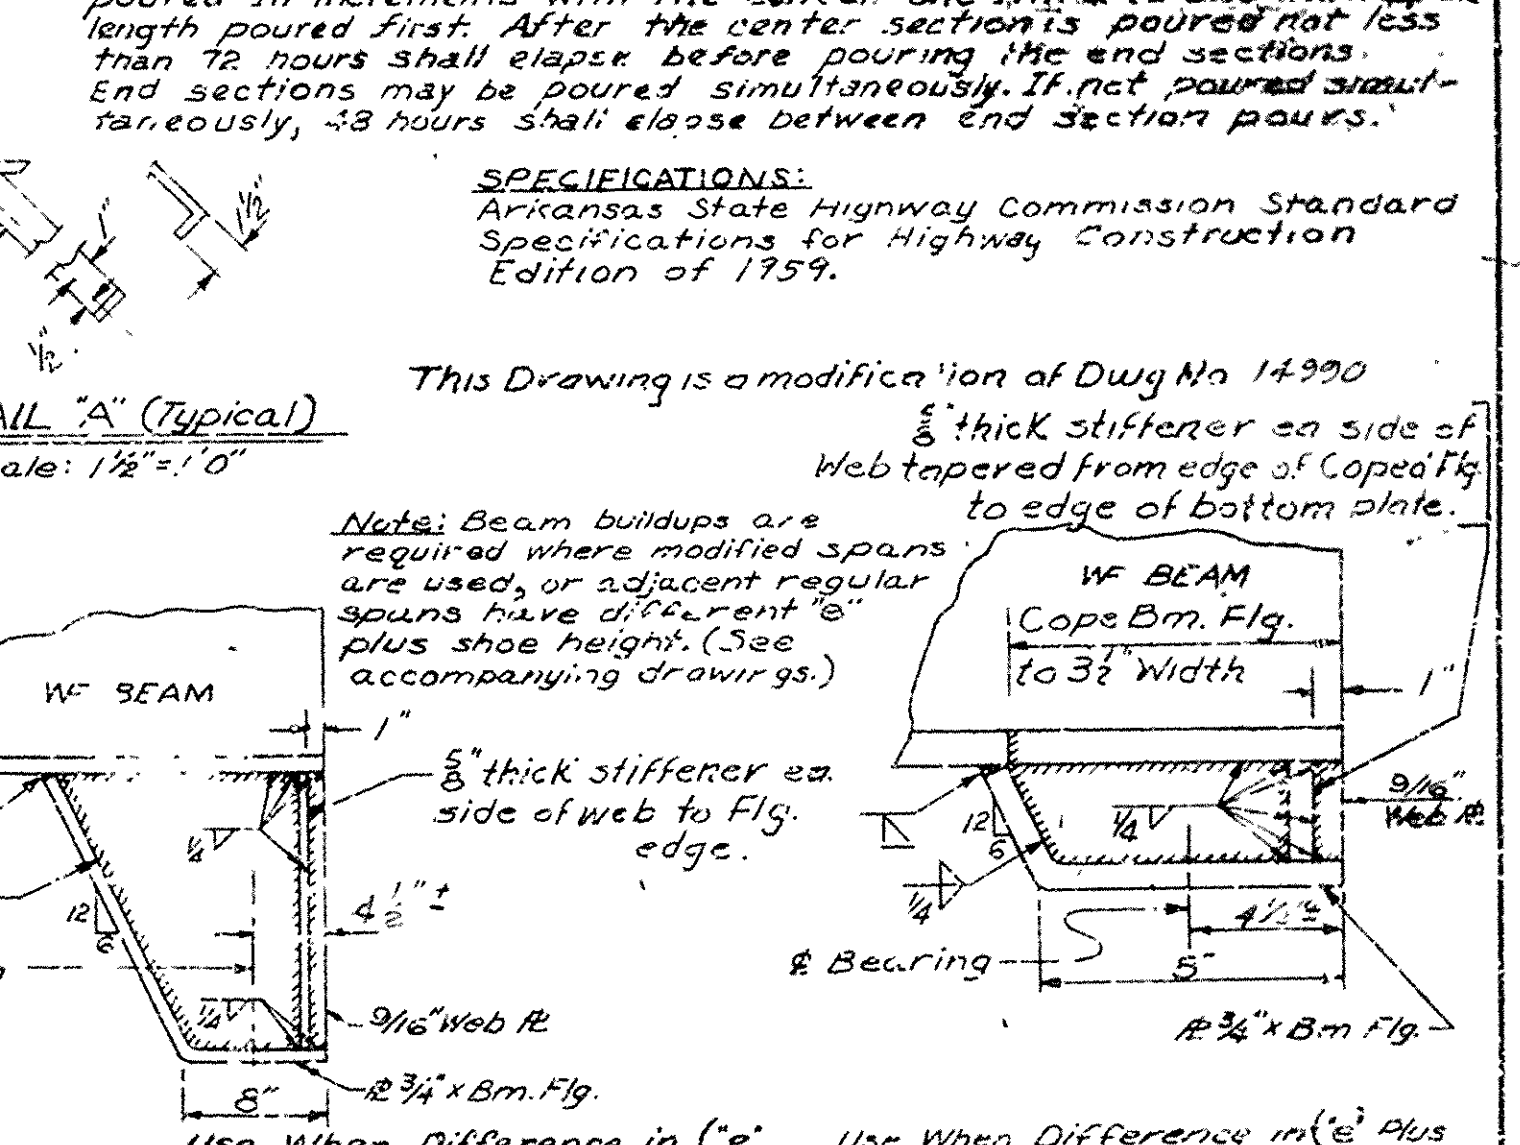 length poured first. After the center section is poured not less
than 72 hours shall elapse before pouring the end sections.
End sections may be poured simultaneously. If not poured simul-
taneously, 48 hours shall elapse between end section pours.
1"
1½"
½"
SPECIFICATIONS:
Arkansas State Highway Commission Standard
Specifications for Highway Construction
Edition of 1959.
This Drawing is a modification of Dwg No 14990
AIL "A" (Typical)
ale: 1½"=1'0"
5/8" thick stiffener ea side of
Web tapered from edge of Coped Flg.
to edge of bottom plate.
Note: Beam buildups are
required where modified spans
are used, or adjacent regular
spans have different "e"
plus shoe height. (See
accompanying drawings.)
WF BEAM
1"
5/8" thick stiffener ea.
side of web to Flg.
edge.
1/4
12
6
4 1/2" ±
1/4
9/16" Web ℄
8"
℄ 3/4" x Bm. Flg.
WF BEAM
Cope Bm. Flg.
to 3½" Width
1"
9/16"
Web ℄
12
6
1/4
1/4
4½"±
℄ Bearing
5"
℄ 3/4" x Bm Flg.
Use When Difference in ("e"
Use When Difference in ("e" Plus